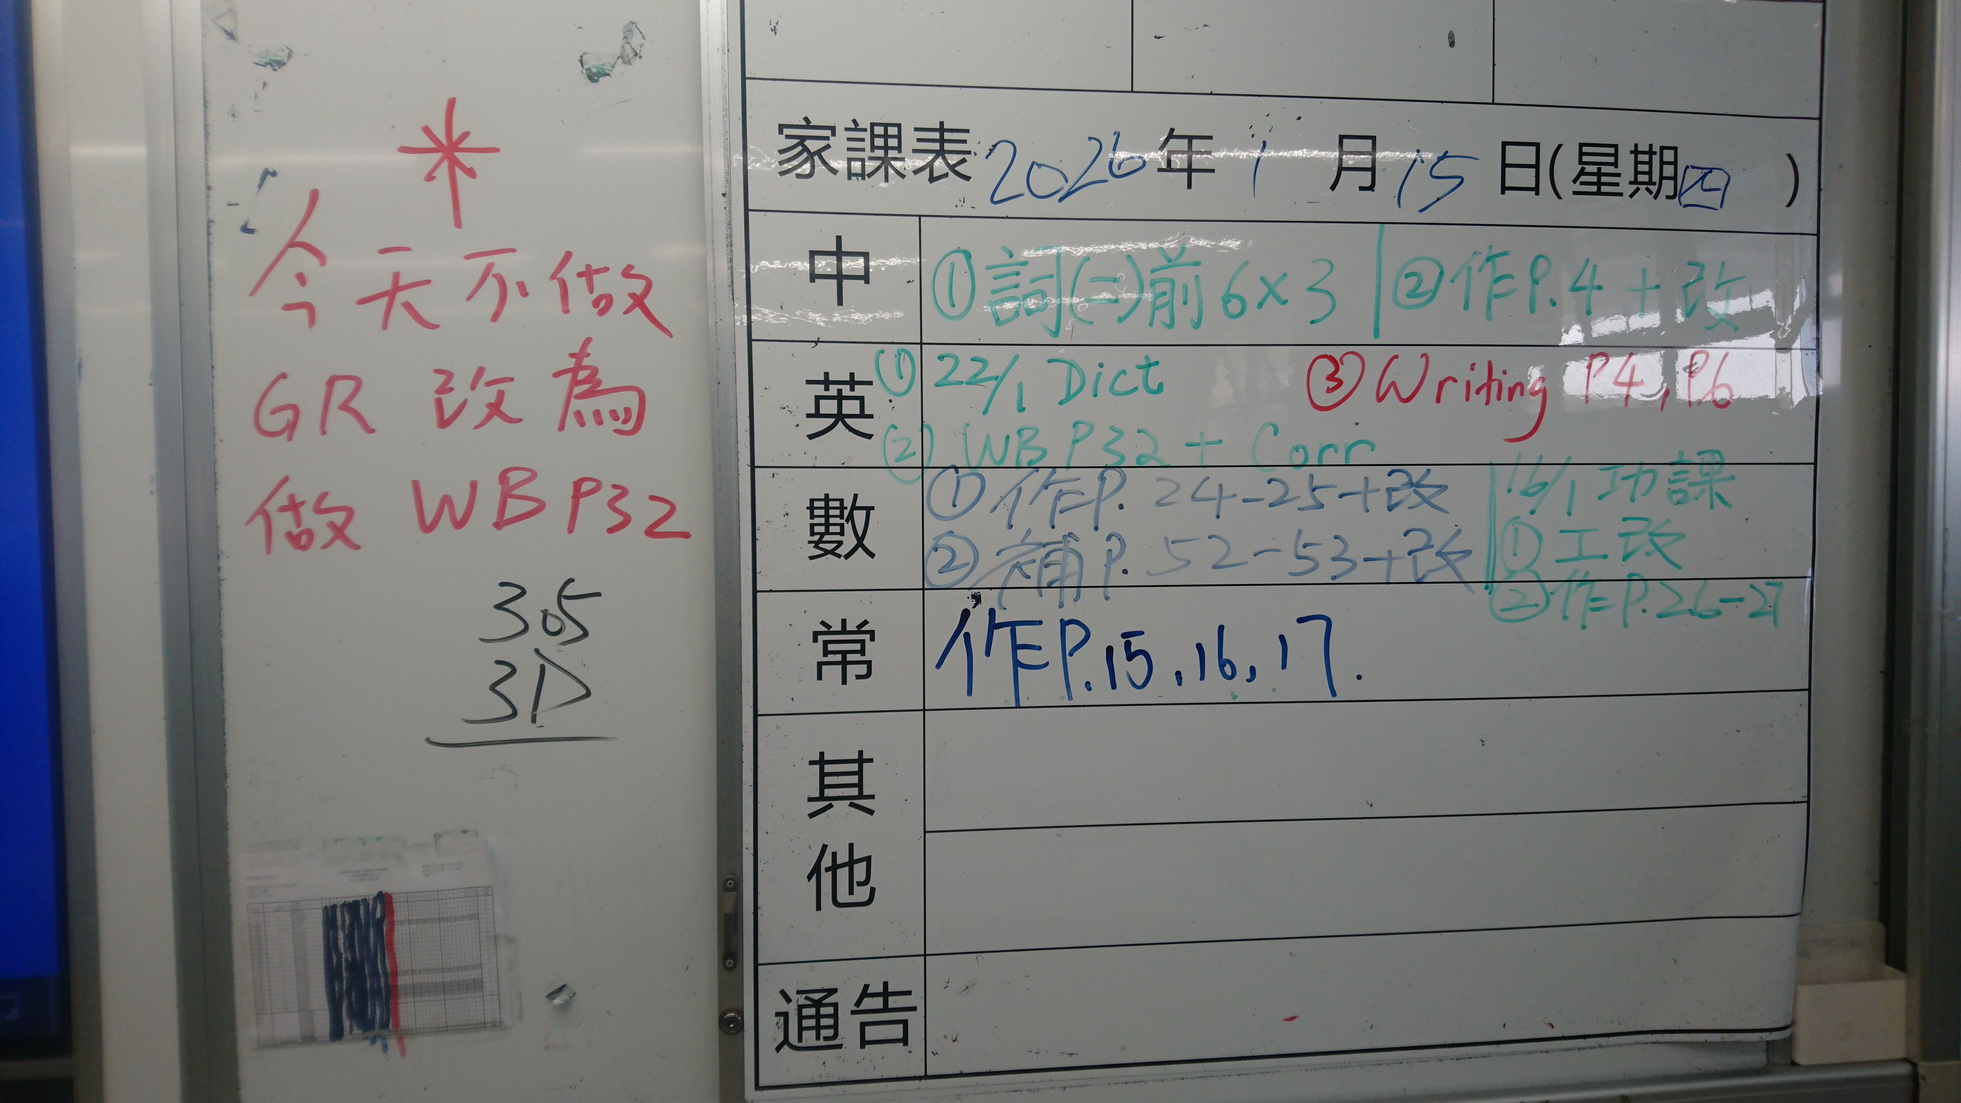 今天不做
GR 改為
做 WB P32
305
3D
家課表 2026 年 1 月 15 日(星期四)
中
①詞(二)前6×3 | ②作P.4+改
英
① 22/1 Dict
③ Writing P4, P.6
② WB P32 + Corr
數
①作P. 24-25+改
②補P. 52-53+改
16/1 功課
①工改
②作P.26-27
常
作P.15,16,17.
其他
通告